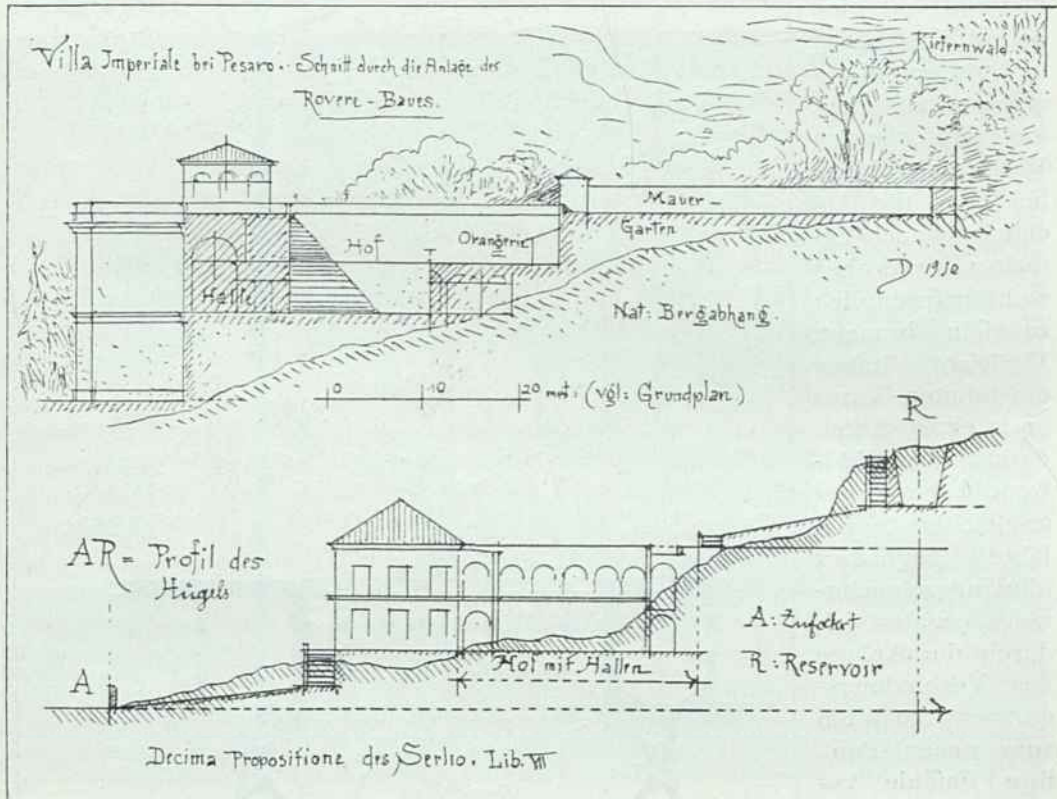 Villa Imperiale bei Pesaro. Schnitt durch die Anlage des
Rovere-Baues.
Kiefernwald
Mauer -
Hof
Orangerie
Garten
Halle
D 1910
Nat: Bergabhang.
0 10 20 met. (vgl: Grundplan)
R
AR = Profil des
Hügels
A: Zufahrt
Hof mit Hallen
R: Reservoir
A
Decima Propositione des Serlio. Lib. VII